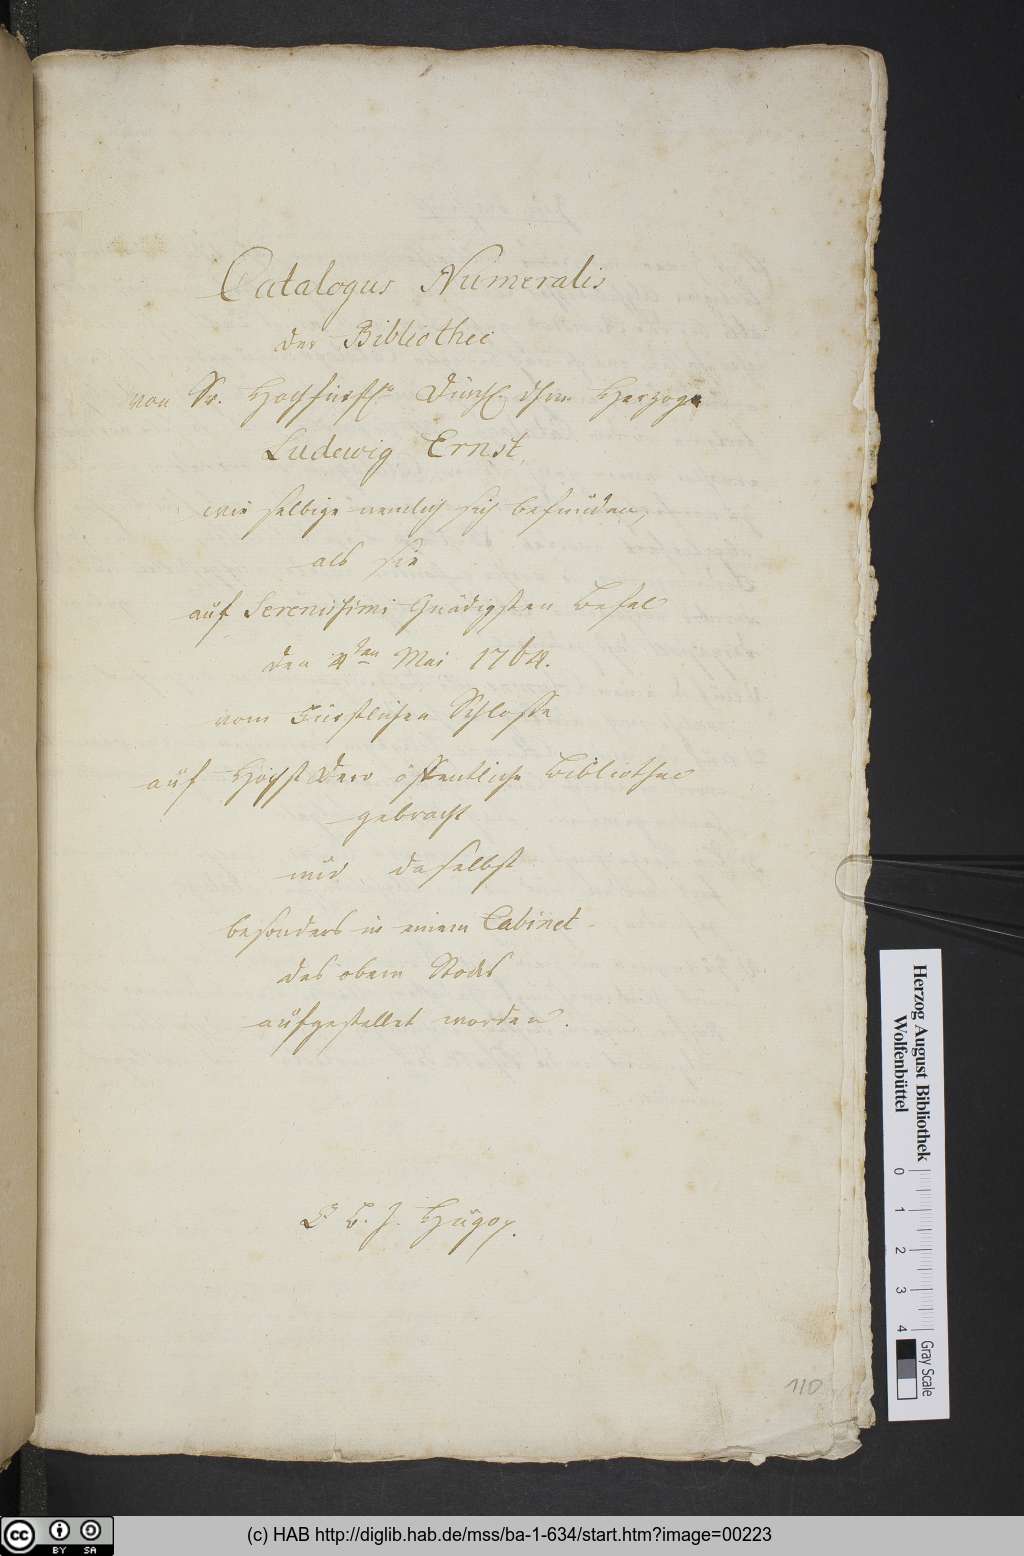 Catalogus Numeralis
der Bibliothec
von Sr. Hochfürstl. Durchl. dem Herzoge
Ludewig Ernst,
wie selbige nemlich sich befunden,
als sie
auf Serenissimi Gnädigsten Befel
den 4ten Mai 1764.
vom Fürstlichen Schlosse
auf Höchst Dero öffentliche Bibliothec
gebracht
und daselbst
besonders in einem Cabinet
des obern Stocks
aufgestellet worden.
Hugo
110
Herzog August Bibliothek
Wolfenbüttel
0 1 2 3 4
Gray Scale
cc BY SA
(c) HAB http://diglib.hab.de/mss/ba-1-634/start.htm?image=00223